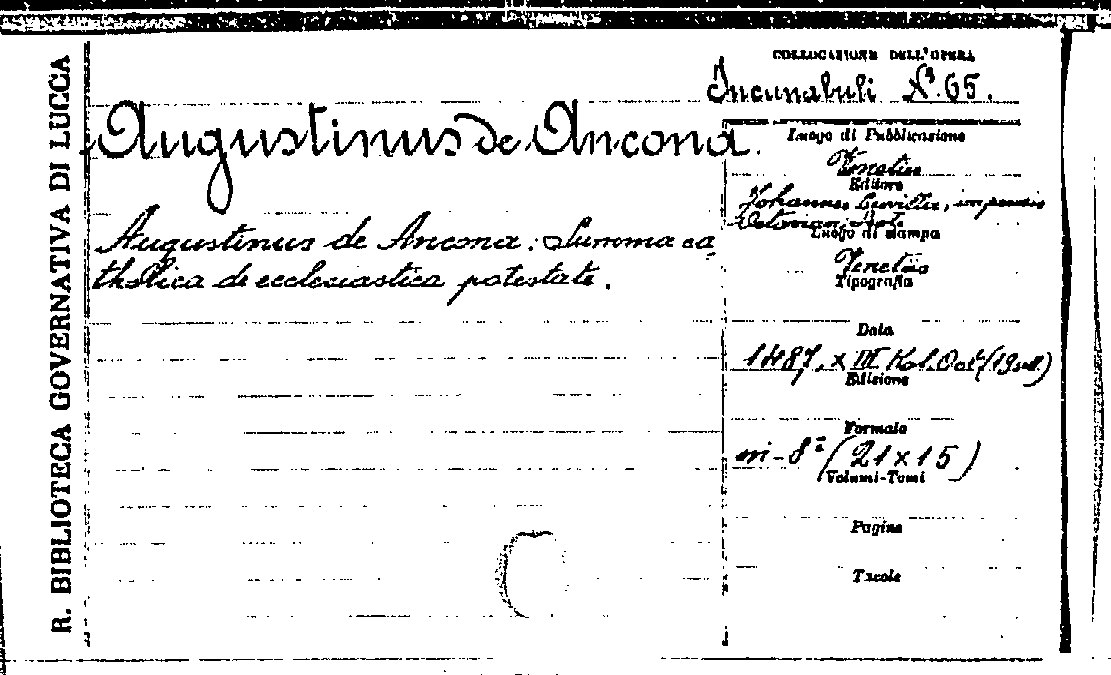 R. BIBLIOTECA GOVERNATIVA DI LUCCA
COLLOCAZIONE DELL'OPERA
Incunabuli N.° 65.
Augustinus de Ancona.
Augustinus de Ancona: Summa ca
tholica de ecclesiastica potestate.
Luogo di Pubblicazione
Venetiis
Editore
Johannes impensis
Octaviani
Luogo di stampa
Venetiis
Tipografia
Data
1487, XIII Kal. Oct (19 sett.)
Edizione
Formato
in-8° (21x15)
Volumi-Tomi
Pagine
Tavole